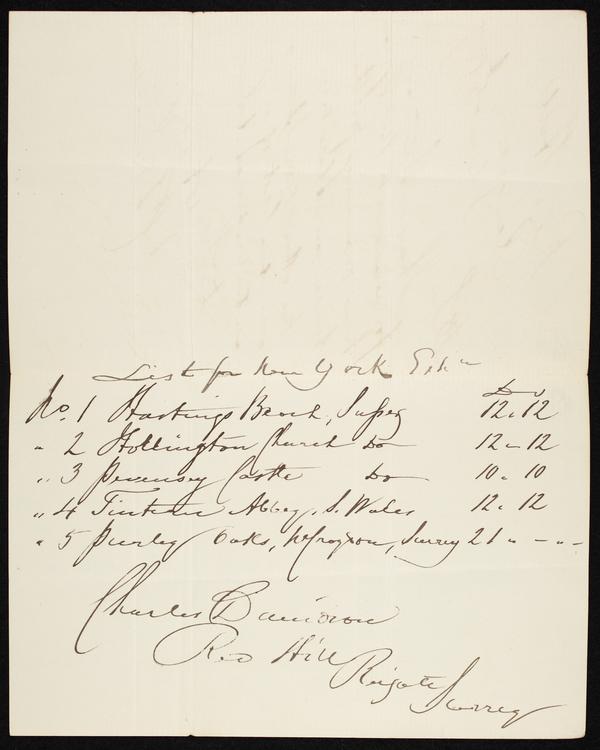 List for New York Exhn
£ s
No. 1 Hastings Beach, Sussex 12 „ 12
„ 2 Hollington Church Do 12 „ 12
„ 3 Pevensey Castle Do 10 „ 10
„ 4 Tintern Abbey, S. Wales 12 „ 12
„ 5 Purley Oaks, Nr Croydon, Surrey 21 „ – „ –
Charles Davidson
Red Hill
Reigate
Surrey